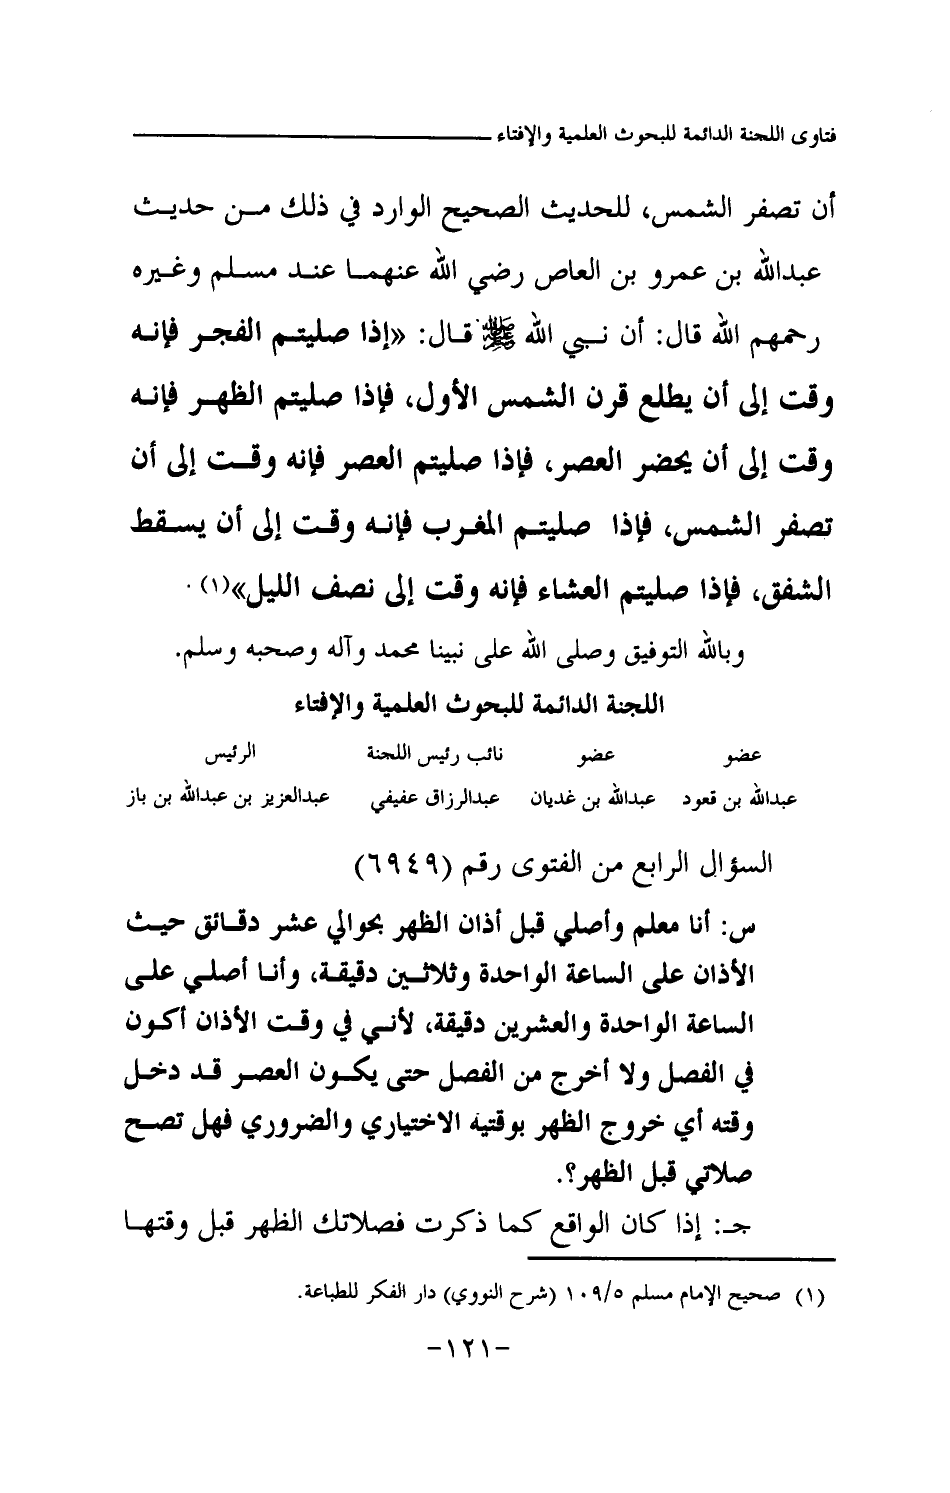 فتاوى اللجنة الدائمة للبحوث العلمية والإفتاء
أن تصفر الشمس، للحديث الصحيح الوارد في ذلك من حديث
عبدالله بن عمرو بن العاص رضي الله عنهما عند مسلم وغيره
رحمهم الله قال: أن نبي الله ﷺ قال: «إذا صليتم الفجر فإنه
وقت إلى أن يطلع قرن الشمس الأول، فإذا صليتم الظهر فإنه
وقت إلى أن يحضر العصر، فإذا صليتم العصر فإنه وقت إلى أن
تصفر الشمس، فإذا صليتم المغرب فإنه وقت إلى أن يسقط
الشفق، فإذا صليتم العشاء فإنه وقت إلى نصف الليل»(١).
وبالله التوفيق وصلى الله على نبينا محمد وآله وصحبه وسلم.
اللجنة الدائمة للبحوث العلمية والإفتاء
عضو عضو نائب رئيس اللجنة الرئيس
عبدالله بن قعود عبدالله بن غديان عبدالرزاق عفيفي عبدالعزيز بن عبدالله بن باز
السؤال الرابع من الفتوى رقم (٦٩٤٩)
س: أنا معلم وأصلي قبل أذان الظهر بحوالي عشر دقائق حيث
الأذان على الساعة الواحدة وثلاثين دقيقة، وأنا أصلي على
الساعة الواحدة والعشرين دقيقة، لأني في وقت الأذان أكون
في الفصل ولا أخرج من الفصل حتى يكون العصر قد دخل
وقته أي خروج الظهر بوقتيه الاختياري والضروري فهل تصح
صلاتي قبل الظهر؟.
جـ: إذا كان الواقع كما ذكرت فصلاتك الظهر قبل وقتها
(١) صحيح الإمام مسلم ١٠٩/٥ (شرح النووي) دار الفكر للطباعة.
-١٢١-